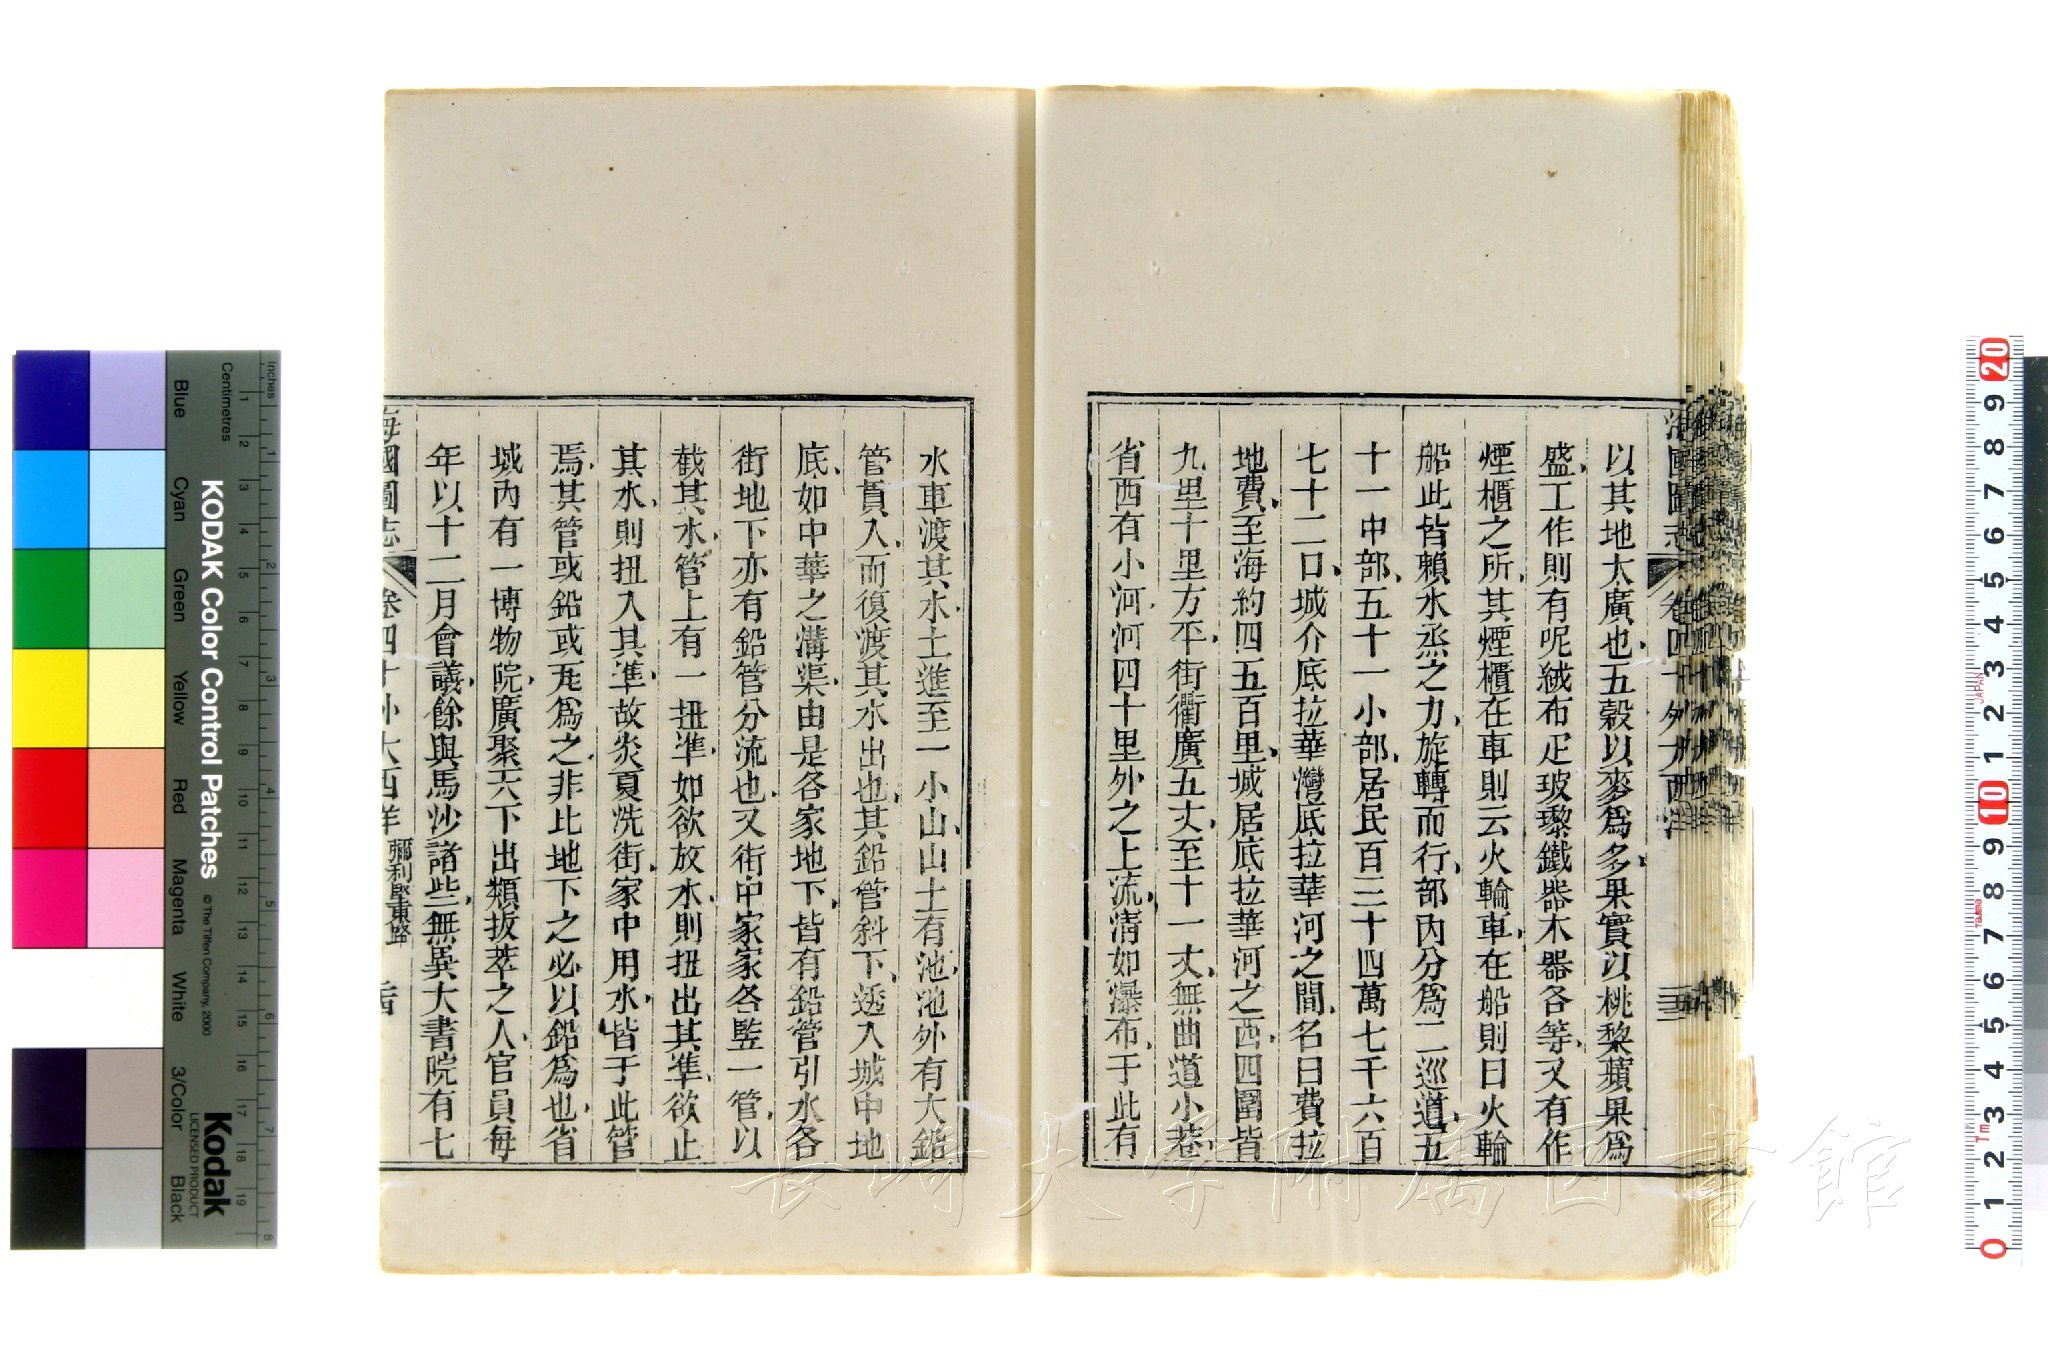 海國圖志 卷四十 外大西洋
以其地太廣也五穀以麥爲多果實以桃黎蘋果爲
盛工作則有呢絨布疋玻瓈鐵器木器各等又有作
煙櫃之所其煙櫃在車則云火輪車在船則曰火輪
船此皆賴水烝之力旋轉而行部內分爲二巡道五
十一中部五十一小部居民百三十四萬七千六百
七十二口城介底拉華灣底拉華河之間名曰費拉
地費至海約四五百里城居底拉華河之西四圍皆
九里十里方平街衢廣五丈至十一丈無曲道小巷
省西有小河河四十里外之上流淸如瀑布于此有
水車渡其水土進至一小山山土有池池外有大鉛
管貫入而復渡其水出也其鉛管斜下透入城中地
底如中華之溝渠由是各家地下皆有鉛管引水各
街地下亦有鉛管分流也又街中家家各竪一管以
截其水管上有一扭準如欲放水則扭出其準欲止
其水則扭入其準故炎夏洗街家中用水皆于此管
焉其管或鉛或瓦爲之非比地下之必以鉛爲也省
城內有一博物院廣聚天下出類拔萃之人官員每
年以十二月會議餘與馬沙諸些無異大書院有七
海國圖志 卷四十 外大西洋 彌利堅東路
KODAK Color Control Patches © The Tiffen Company, 2000
Kodak LICENSED PRODUCT
Inches
Centimetres
Blue Cyan Green Yellow Red Magenta White 3/Color Black
1 2 3 4 5 6 7 8
1 2 3 4 5 6 7 8 9 10 11 12 13 14 15 16 17 18 19
20 9 8 7 6 5 4 3 2 1 10 9 8 7 6 5 4 3 2 1 0
JAPAN
Tajima
1m
長崎大学附属図書館